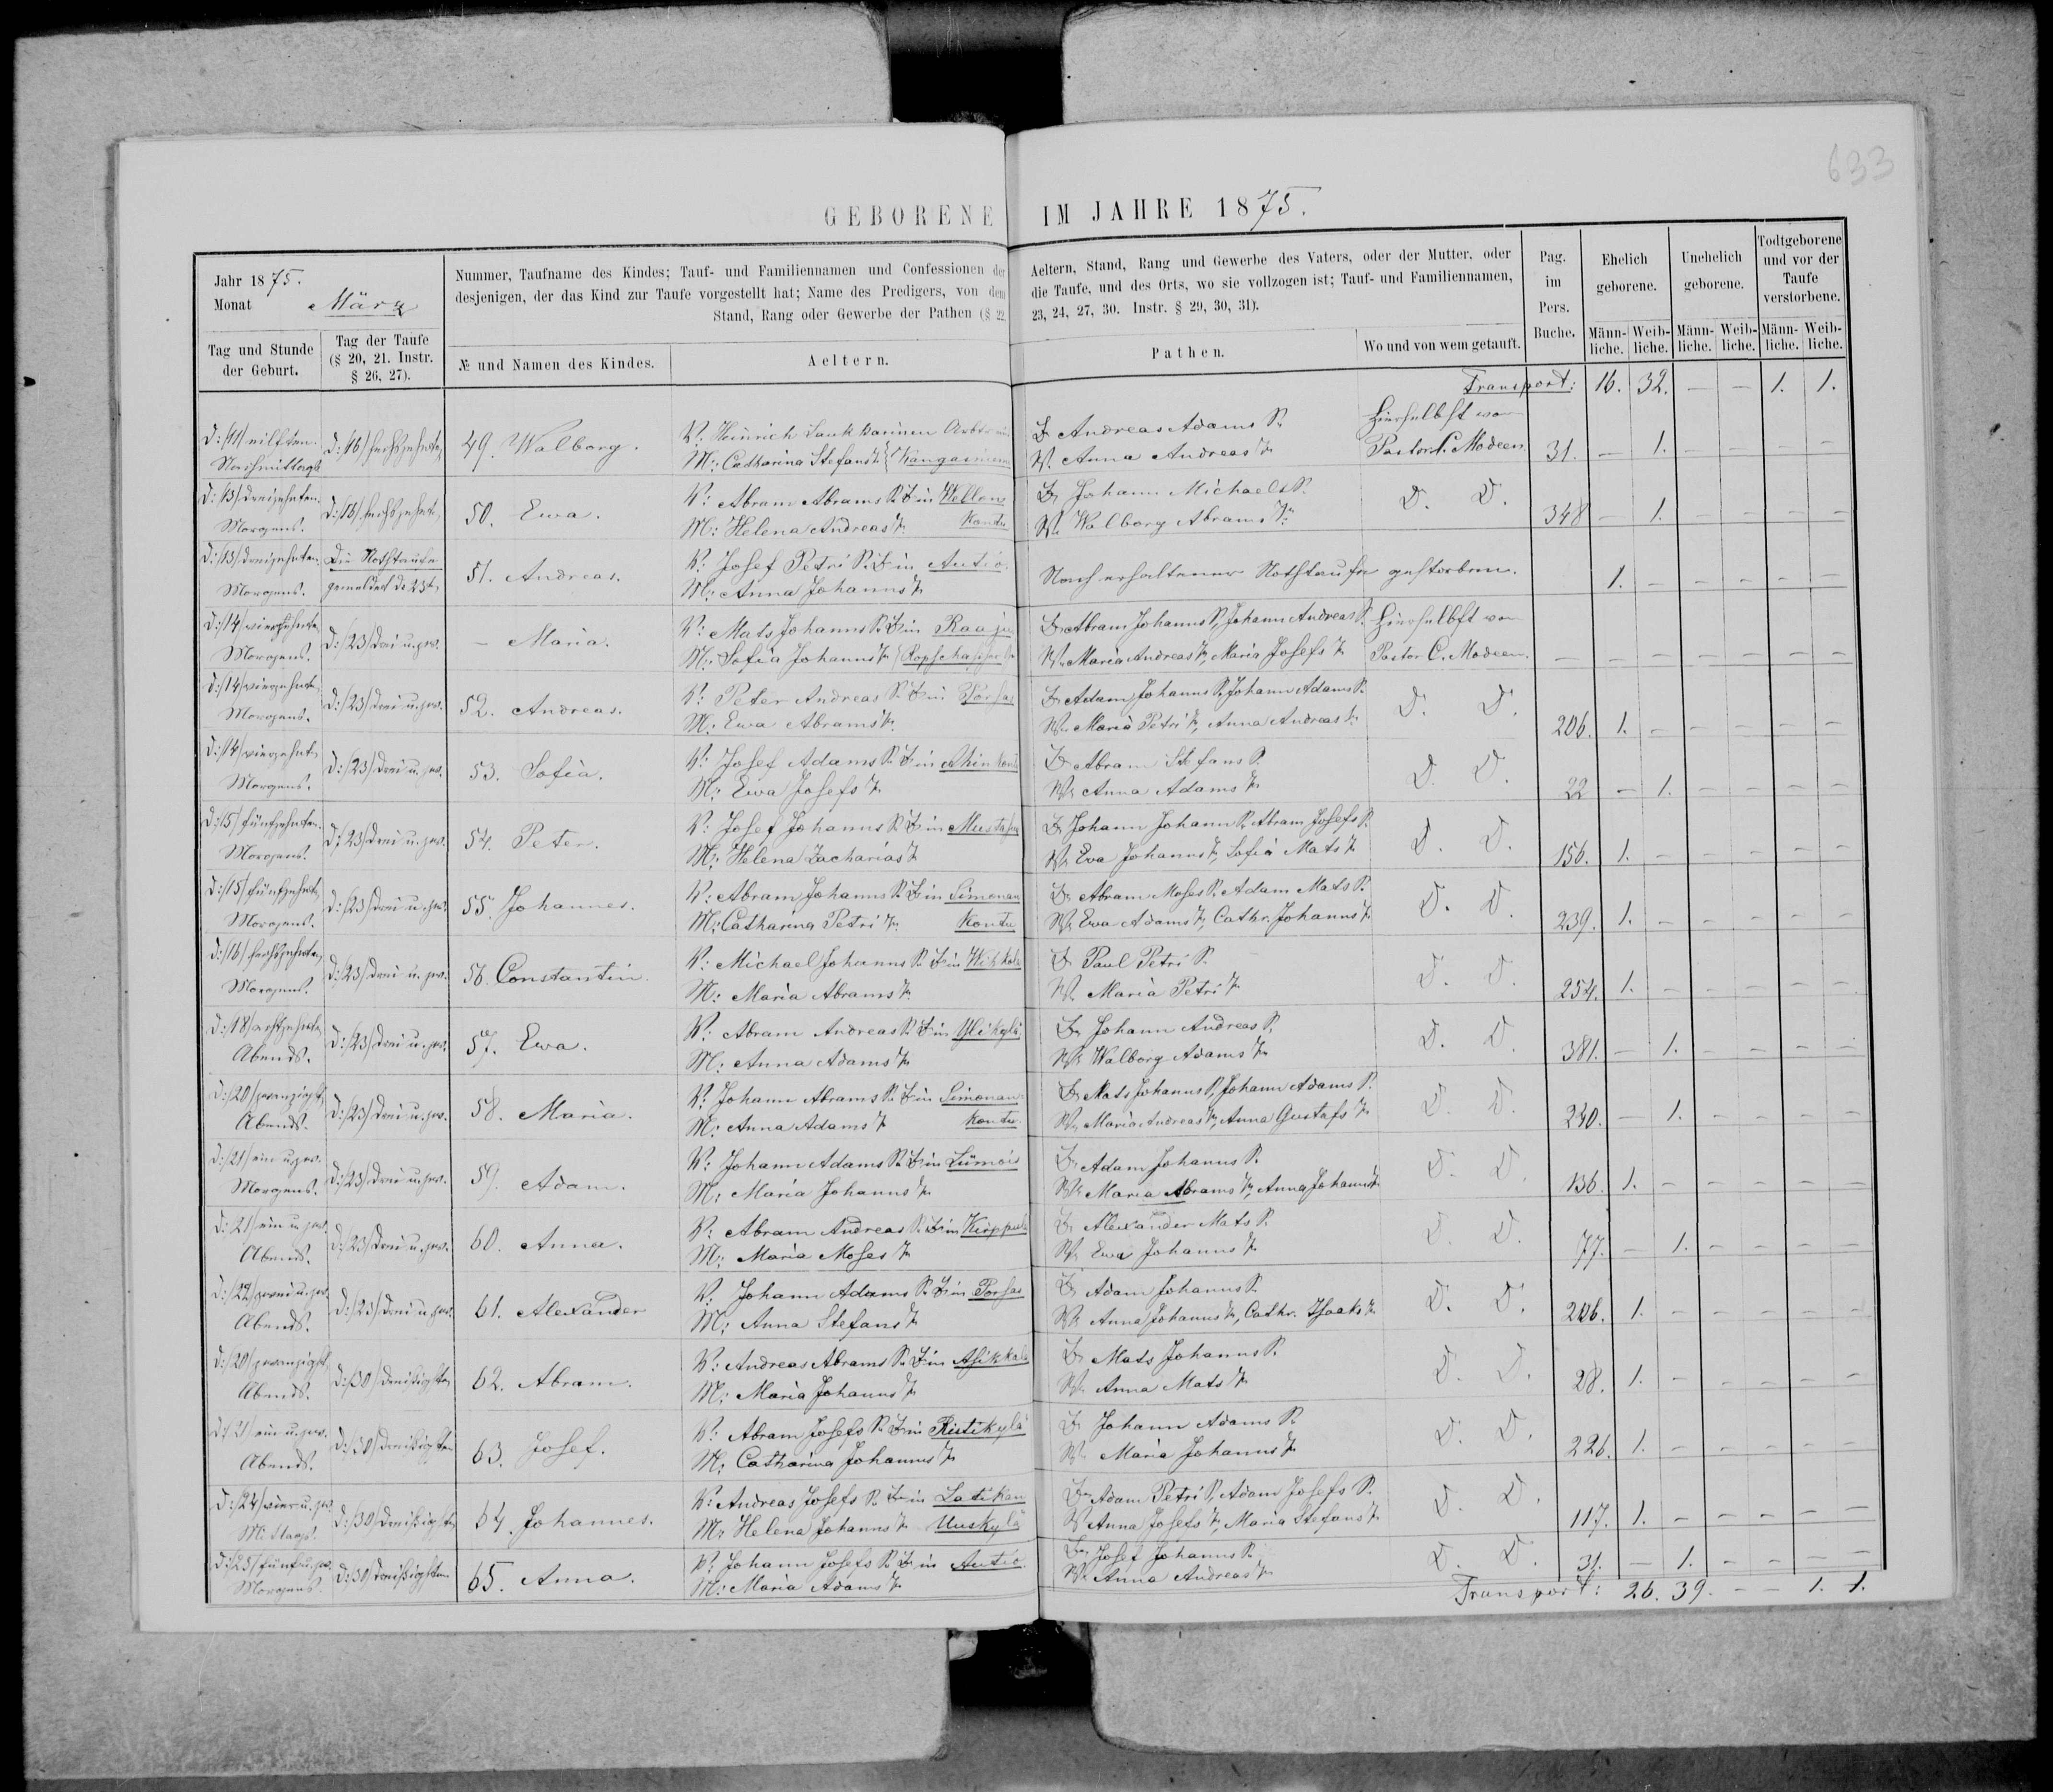 633
GEBORENE IM JAHRE 1875.
Jahr 1875.
Monat März
Nummer, Taufname des Kindes; Tauf- und Familiennamen und Confessionen der Aeltern, Stand, Rang und Gewerbe des Vaters, oder der Mutter, oder
desjenigen, der das Kind zur Taufe vorgestellt hat; Name des Predigers, von dem die Taufe, und des Orts, wo sie vollzogen ist; Tauf- und Familiennamen,
Stand, Rang oder Gewerbe der Pathen (§ 22, 23, 24, 27, 30. Instr. § 29, 30, 31).
Pag. im Pers. Buche.
Ehelich geborene.
Unehelich geborene.
Todtgeborene und vor der Taufe verstorbene.
Tag und Stunde der Geburt.
Tag der Taufe (§ 20, 21. Instr. § 26, 27).
№ und Namen des Kindes.
Aeltern.
Pathen.
Wo und von wem getauft.
Männ-liche. Weib-liche. Männ-liche. Weib-liche. Männ-liche. Weib-liche.
Transport: 16. 32. — — 1. 1.
D: /11/ eilften. D: /16/ sechszehnten 49. Walborg. V. Heinrich Arbtr. in Andreas Adams S. Hierselbst von
Nachmittags M: Catharina Stefans T. Kangasniemi W. Anna Andreas T. Pastor C. Modeen 31. — 1. — — — —
D: /13/ dreizehnten. D: /16/ sechszehnt. 50. Ewa. V: Abram Abrams S. in Johann Michaels S. D. D.
Morgens. M: Helena Andreas T. Kontu W. Walborg Abrams T. 348 — 1. — — — —
D: /13/ dreizehnten. Die Nothtaufe 51. Andreas. V: Josef Petri S. in Autio. Nach erhaltener Nothtaufe gestorben.
Morgens. gemeldet d. 23t. M: Anna Johanns T. 1. — — — — —
D: /14/ vierzehnte D: /23/ drei u. zw. — Maria. V: Mats Johanns S. in Abram Johanns S, Johann Andreas S. Hierselbst von
Morgens. M: Sofia Johanns T. Ropscha W. Maria Andreas T, Maria Josefs T. Pastor C. Modeen. — — — — — — —
D: /14/ vierzehnt. D: /23/ drei u. zw. 52. Andreas. V: Peter Andreas S. in Porsas Adam Johanns S. Johann Adams S. D. D.
Morgens. M: Ewa Abrams T. W. Maria Petri T, Anna Andreas T. 206. 1. — — — — —
D: /14/ vierzehnt. D: /23/ drei u. zw. 53. Sofia. V: Josef Adams S. in Abram Stefans S. D. D.
Morgens. M: Ewa Josefs T. W. Anna Adams T. 22 — 1. — — — —
D: /15/ fünfzehnten. D: /23/ drei u. zw. 54. Peter. V: Josef Johanns S. in Johann Johanns S. Abram Josefs S. D. D.
Morgens. M: Helena Zacharias T. W. Eva Johanns T, Sofia Mats T. 156. 1. — — — — —
D: /15/ fünfzehnt. D: /23/ drei u. zw. 55. Johannes. V: Abram Johanns S. in Simonan Abram Moses S. Adam Mats S. D. D.
Morgens. M: Catharina Petri T. Kontu W. Ewa Adams T, Cathr. Johanns T. 239. 1. — — — — —
D: /16/ sechszehnten D: /23/ drei u. zw. 56. Constantin. V: Michael Johanns S. in Paul Petri S. D. D.
Morgens. M: Maria Abrams T. W. Maria Petri T. 254. 1. — — — — —
D: /18/ achtzehnte D: /23/ drei u. zw. 57. Ewa. V: Abram Andreas S. in Ylikylä Johann Andreas S. D. D.
Abends. M: Anna Adams T. W. Walborg Adams T. 381. — 1. — — — —
D: /20/ zwanzigst. D: /23/ drei u. zw. 58. Maria. V: Johann Abrams S. in Simonan Mats Johanns S, Johann Adams S. D. D.
Abends. M: Anna Adams T. Kontu. W. Maria Andreas T, Anna Gustafs T. 240. — 1. — — — —
D: /21/ ein u. zw. D: /23/ drei u. zw. 59. Adam. V: Johann Adams S. in Adam Johanns S. D. D.
Morgens. M: Maria Johanns T. W. Maria Abrams T, Anna Johanns T. 136. 1. — — — — —
D: /21/ ein u. zw. D: /23/ drei u. zw. 60. Anna. V: Abram Andreas S. in Alexander Mats S. D. D.
Abends. M: Maria Moses T. W. Ewa Johanns T. 77. — 1. — — — —
D: /22/ zwei u. zw. D: /23/ drei u. zw. 61. Alexander V: Johann Adams S. in Porsas Adam Johanns S. D. D.
Abends. M: Anna Stefans T. W. Anna Johanns T, Cathr. Isaaks T. 206. 1. — — — — —
D: /20/ zwanzigst. D: /30/ dreißigsten 62. Abram. V: Andreas Abrams S. in Asikkala Mats Johanns S. D. D.
Abends. M: Maria Johanns T. W. Anna Mats T. 28. 1. — — — — —
D: /21/ ein u. zw. D: /30/ dreißigsten 63. Josef. V: Abram Josefs S. in Ristikylä Johann Adams S. D. D.
Abends. M: Catharina Johanns T. W. Maria Johanns T. 226. 1. — — — — —
D: /24/ vier u. zw. D: /30/ dreißigsten 64. Johannes. V: Andreas Josefs S. in Latikan Adam Petri S, Adam Josefs S. D. D.
Mittags. M: Helena Johanns T. Uuskylä W. Anna Josefs T, Maria Stefans T. 117. 1. — — — — —
D: /25/ fünf u. zw. D: /30/ dreißigsten 65. Anna. V: Johann Josefs S. in Autio. Josef Johanns S. D. D.
Morgens. M: Maria Adams T. W. Anna Andreas T. 31. — 1. — — — —
Transport: 26. 39. — — 1. 1.